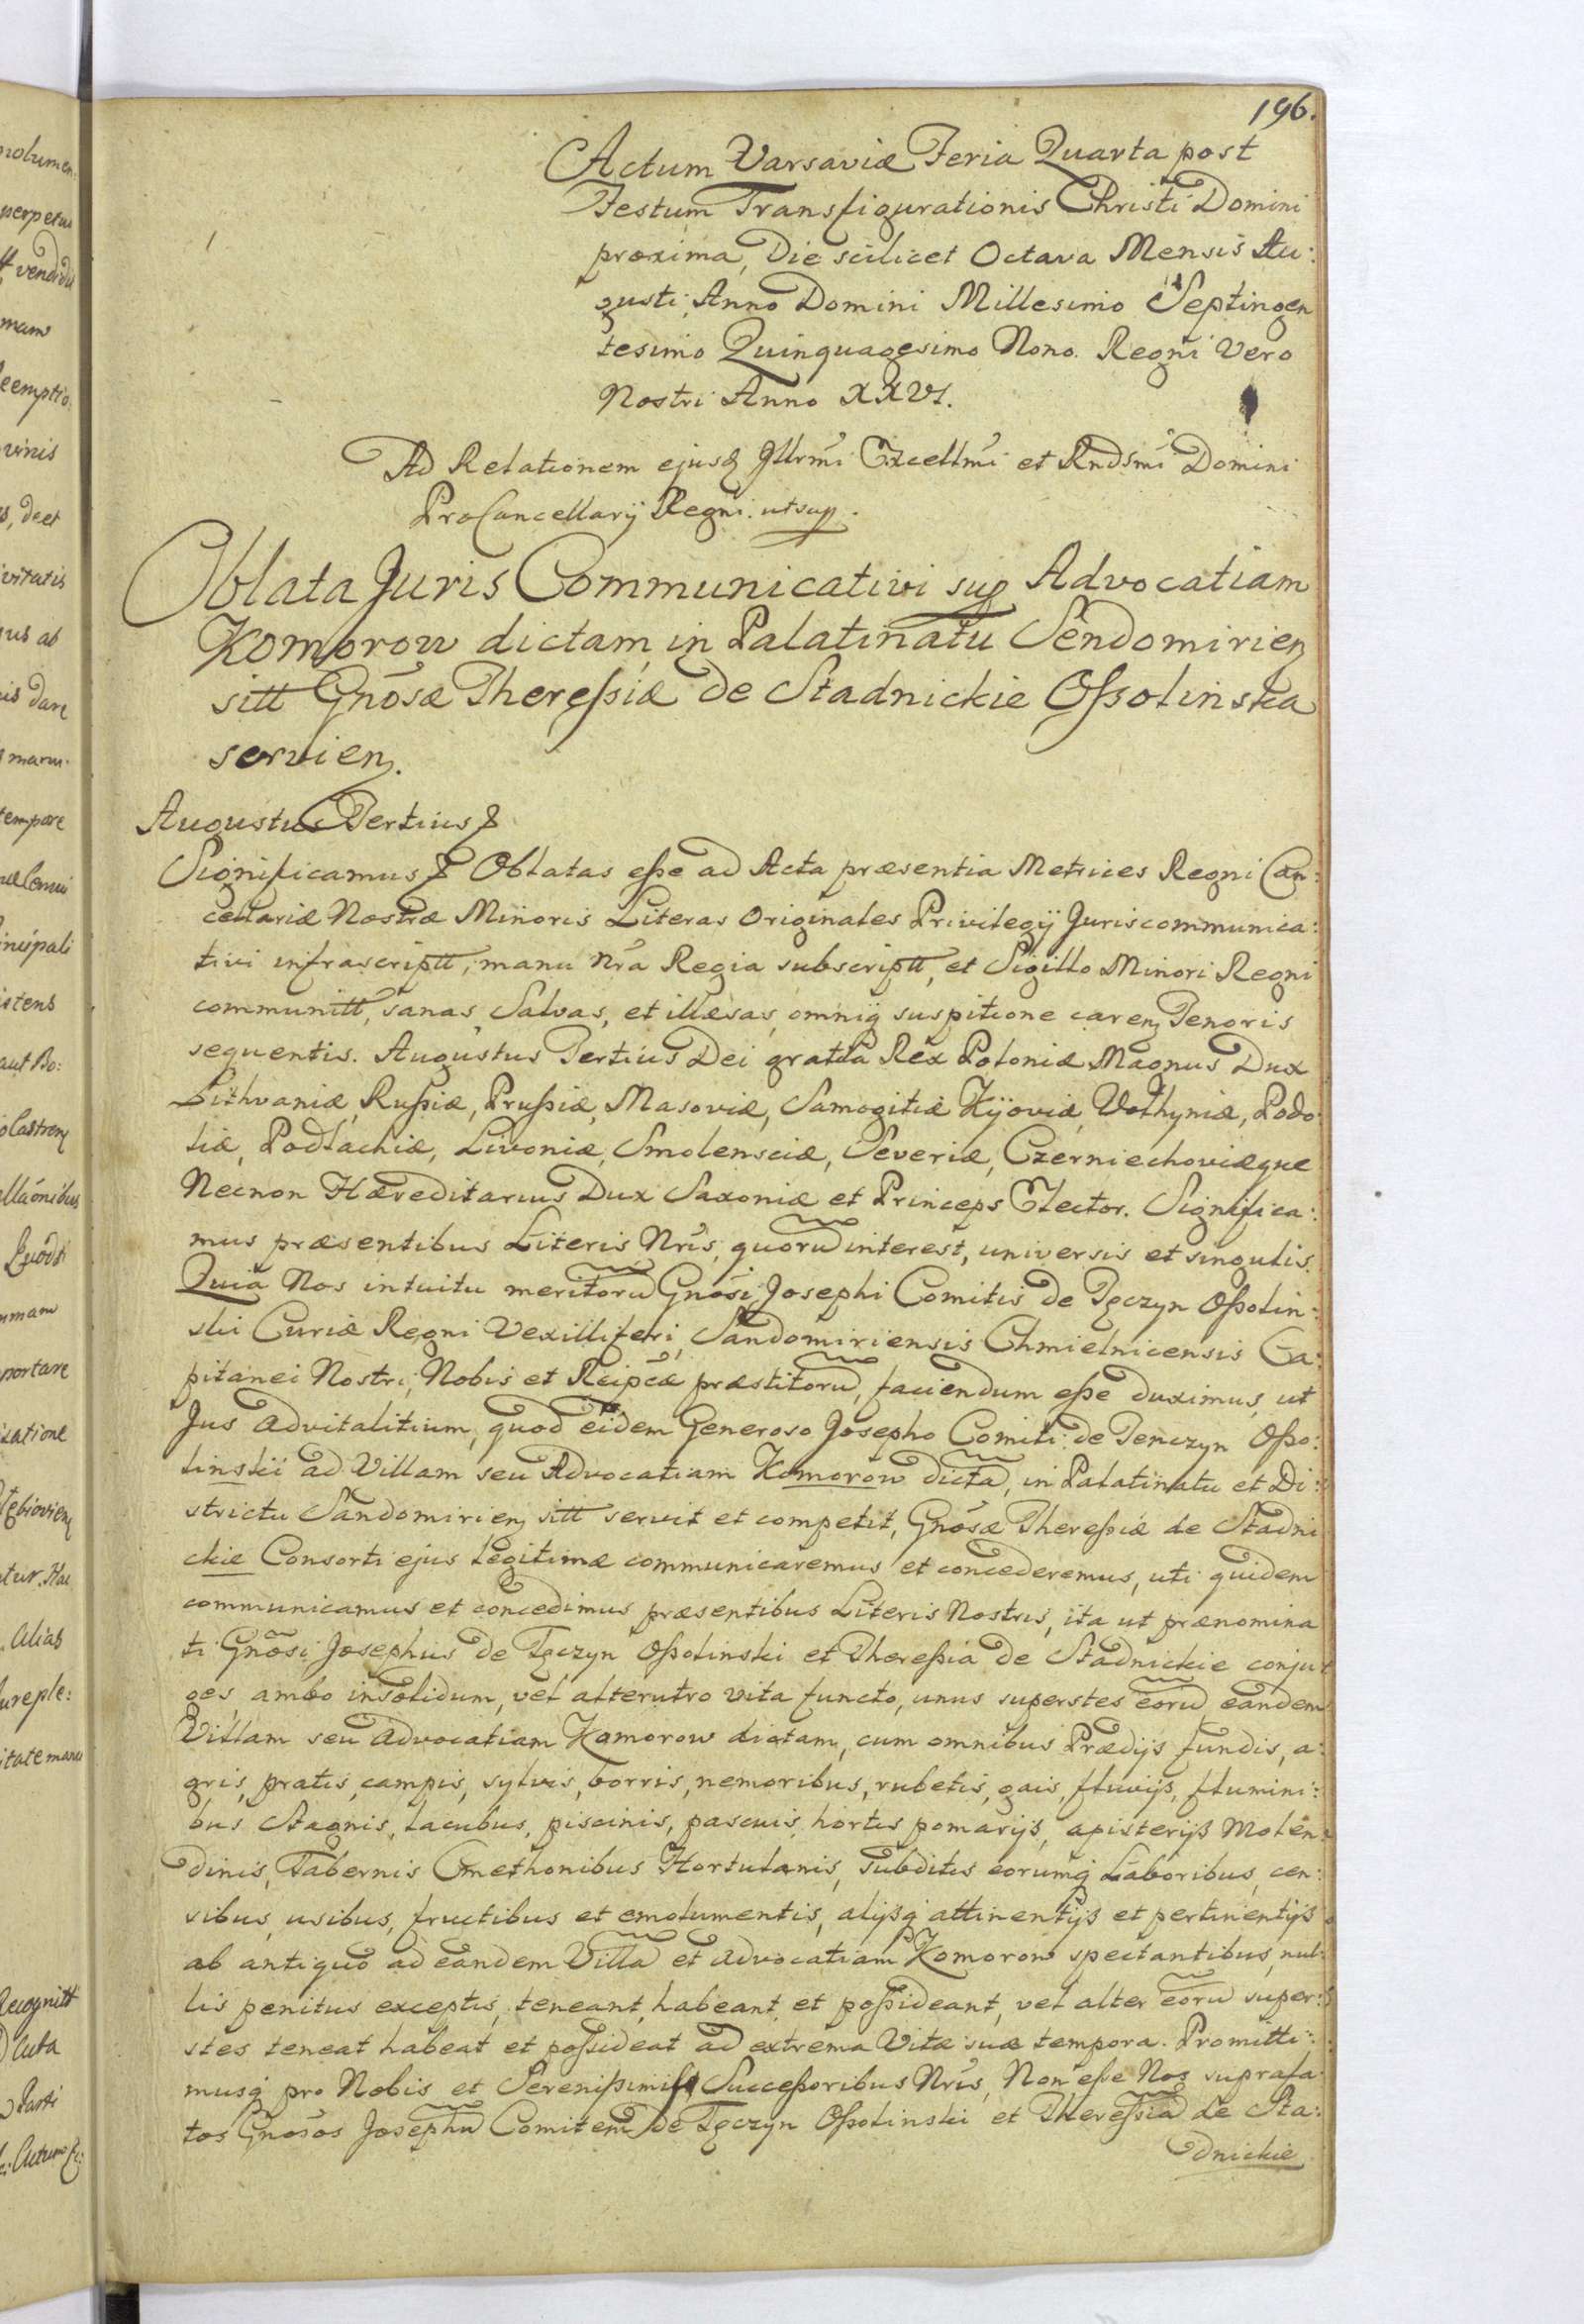 196.
Actum Varsaviæ Feria Quarta post
Festum Transfigurationis Christi Domini
proxima, Die scilicet Octava Mensis Au:
gusti, Anno Domini Millesimo Septingen
tesimo Quinquagesimo Nono. Regni Vero
Nostri Anno XXVI.
Ad Relationem ejusq Illrmi Excellmi et Rndsmi Domini
ProCancellarij Regni. utsup.
Oblata Juris Communicativi sup Advocatiam
Komorow dictam, in Palatinatu Sendomirien
sitt Gnosæ Theressiæ de Stadnickie Ossolinska
servien.
Augustus Tertius &
Significamus & Oblatas esse ad Acta præsentia Metrices Regni Can:
cellariæ Nostræ Minoris Literas Originales Privilegij Juris communica:
tivi infrascriptt, manu Nra Regia subscriptt, et Sigillo Minori Regni
communitt, sanas, Salvas, et illæsas, omniq suspitione caren Tenoris
sequentis. Augustus Tertius Dei gratia Rex Poloniæ Magnus Dux
Lithvaniæ, Russiæ, Prussiæ, Masoviæ, Samogitiæ Kijoviæ, Volhyniæ, Podo
liæ, Podlachiæ, Livoniæ, Smolensciæ, Severiæ, Czerniechoviæque
Necnon Hæreditarius Dux Saxoniæ et Princeps Elector. Significa:
mus præsentibus Literis Nris, quoru interest, universis et singulis.
Quia Nos intuitu meritoru Gnosi Josephi Comitis de Tęczyn Ossolin:
ski Curiæ Regni Vexilliferi, Sandomiriensis Chmielnicensis Ca:
pitanei Nostri, Nobis et Reipcæ præstitoru, faciendum esse duximus, ut
Jus advitalitium, quod eidem Generoso Josepho Comiti de Tenczyn Osso:
linskii ad Villam seu Advocatiam Komorow dicta, in Palatinatu et Di:
strictu Sandomirien sitt servit et competit, Gnosæ Theressiæ de Stadni
ckie Consorti ejus Legitimæ communicaremus et concederemus, uti quidem
communicamus et concedimus præsentibus Literis Nostris, ita ut prænomina
ti Gnosi Josephus de Tęczyn Ossolinski et Theressia de Stadnickie conju
ges, ambo insolidum, vel alterutro vita functo, unus superstes eoru eandem
Villam seu Advocatiam Komorow dictam, cum omnibus Prædijs fundis, a:
gris, pratis, campis, sylvis, borris, nemoribus, rubetis, gais, fluvijs, flumini:
bus Stagnis, lacubus, piscinis, pascuis, hortis pomarijs, apisterijs Molen:
dinis, Tabernis Cmethonibus Hortulanis, subditis eorumq Laboribus, cen:
sibus, usibus, fructibus et emolumentis, alijsq attinentijs et pertinentijs
ab antiquo ad eandem Villa et advocatiam Komorow spectantibus, nul:
lis penitus exceptis, teneant, habeant, et possideant, vel alter eoru super:
stes teneat habeat et possideat ad extrema Vitæ suæ tempora. Promitti:
musq pro Nobis et Serenissimis Successoribus Nris, Non esse Nos suprafa
tos Gnosos Josephu Comitem de Tęczyn Ossolinski et Theressia de Sta:
dnickie